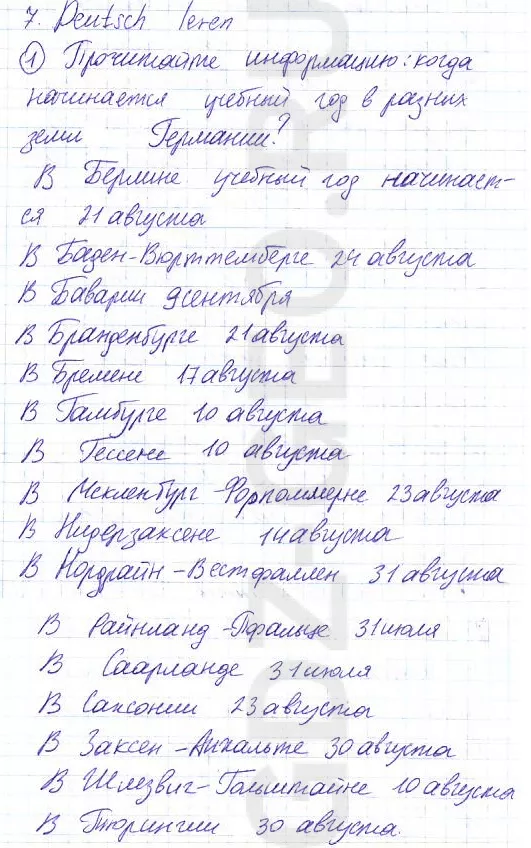 7. Deutsch leren
① Прочитайте информацию: когда
начинается учебный год в разных
земл Германии?
В Берлине учебный год начинает-
ся 21 августа
В Баден-Вюрттемберге 24 августа
В Баварии 9 сентября
В Бранденбурге 21 августа
В Бремене 17 августа
В Гамбурге 10 августа
В Гессене 10 августа
В Мекленбург-Форпоммерне 23 августа
В Нидерзаксене 14 августа
В Нордрайн-Вестфаллен 31 августа
В Райнланд-Пфальце 31 июля
В Саарланде 31 июля
В Саксонии 23 августа
В Заксен-Анхальте 30 августа
В Шлезвиг-Гольштайне 10 августа
В Тюрингии 30 августа.
GDZ-GEO.RU